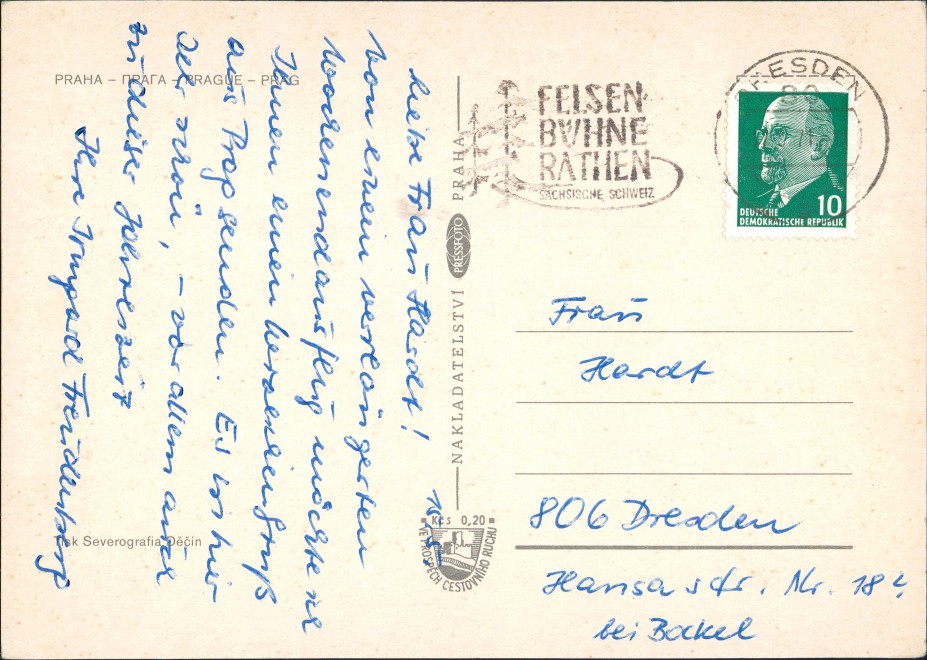 PRAHA – ПРАГА – PRAGUE – PRAG
15.5.
Liebe Frau Hardt!
Von einem verlängerten
Wochenendausflug möchte ich
Ihnen einen herzlichen Gruß
aus Prag senden. Es ist hier
sehr schön, – vor allem auch
zu dieser Jahreszeit
Ihre Irmgard Freudenberg
Tisk Severografia Děčín
NAKLADATELSTVÍ PRESSFOTO PRAHA
Kčs 0,20
VE PROSPĚCH CESTOVNÍHO RUCHU
FELSEN-
BÜHNE
RATHEN
SÄCHSISCHE SCHWEIZ
DRESDEN
DEUTSCHE
DEMOKRATISCHE REPUBLIK
10
Frau
Hardt
806 Dresden
Hansastr. Nr. 18
bei Bockel